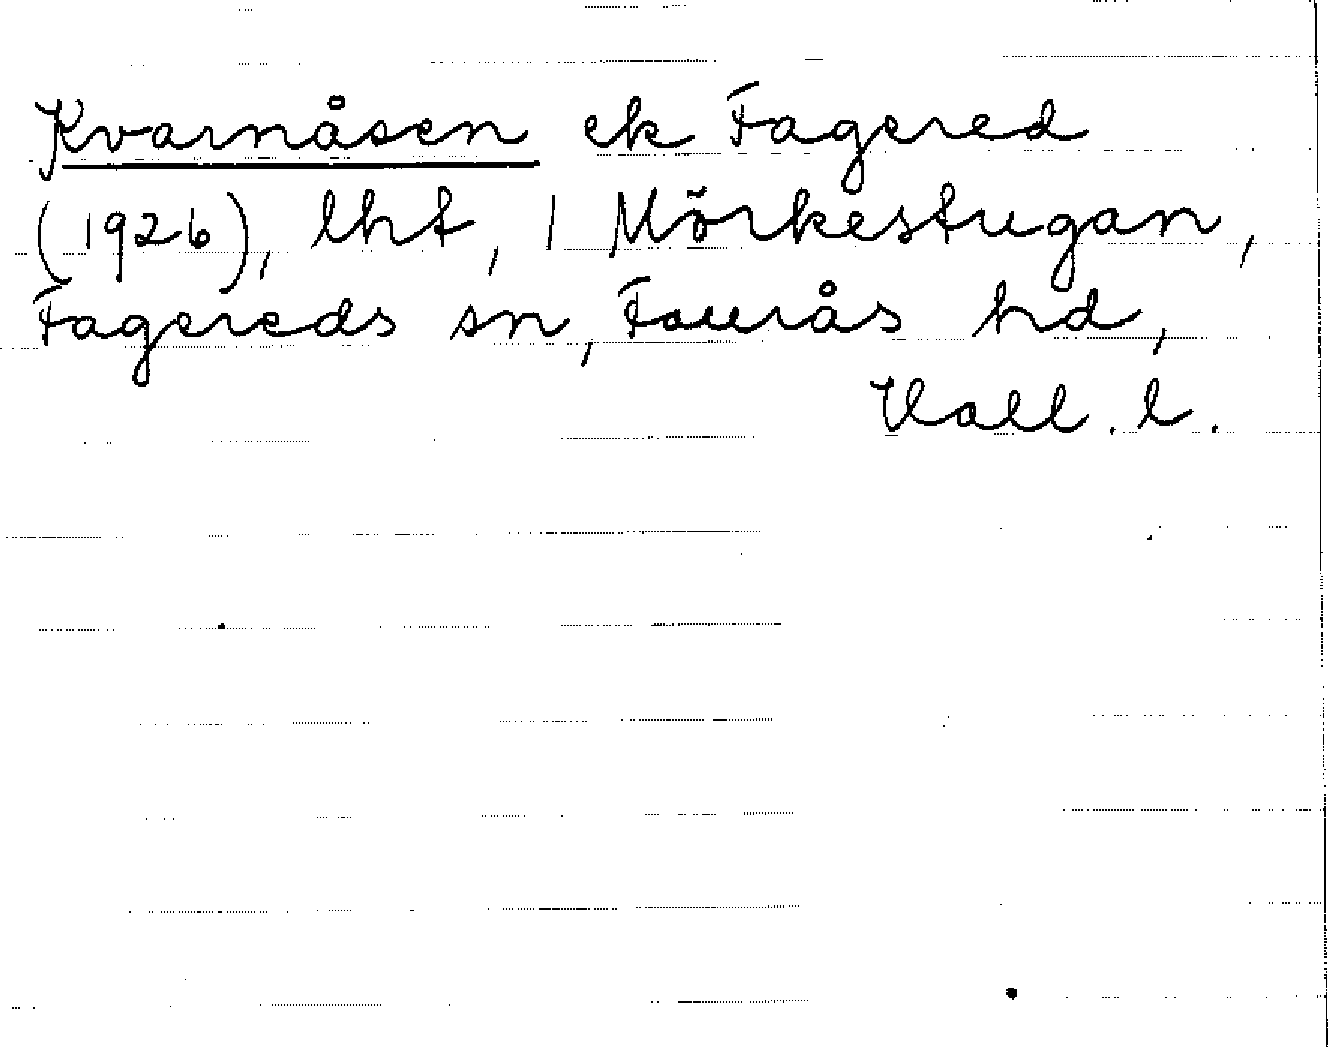 Kvarnåsen ek Fagered
(1926), lht, 1 Mörkestugan,
Fagereds sn, Faurås hd,
Hall. l.